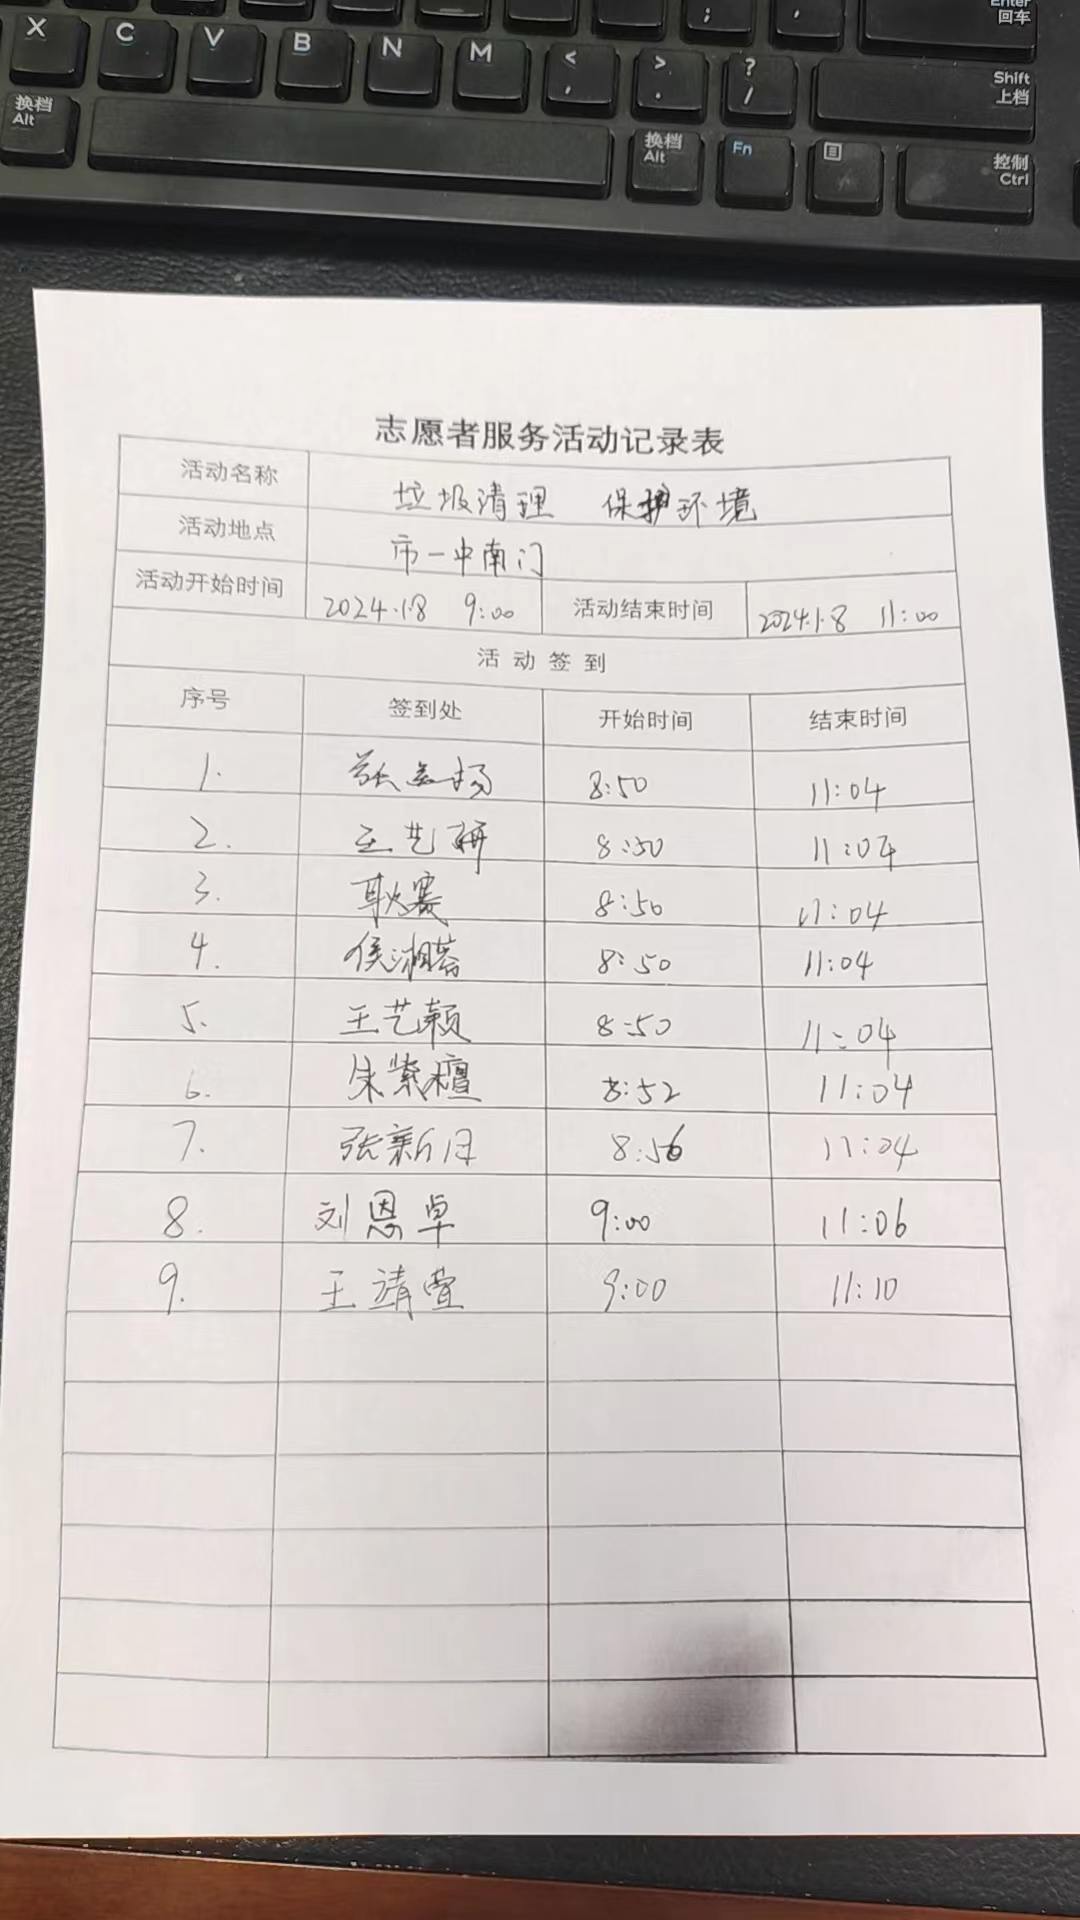 ; ,
Enter 回车
X C V B N M < , > . ? / Shift 上档
换档 Alt 换档 Alt Fn 控制 Ctrl
志愿者服务活动记录表
活动名称 垃圾清理 保护环境
活动地点 市一中南门
活动开始时间 2024.1.8 9:00 活动结束时间 2024.1.8 11:00
活动签到
序号 签到处 开始时间 结束时间
1. 8:50 11:04
2. 王艺研 8:50 11:04
3. 耿赛 8:50 11:04
4. 侯湘蓉 8:50 11:04
5. 王艺颖 8:50 11:04
6. 朱紫檀 8:52 11:04
7. 张新月 8:56 11:04
8. 刘恩卓 9:00 11:06
9. 王靖萱 9:00 11:10